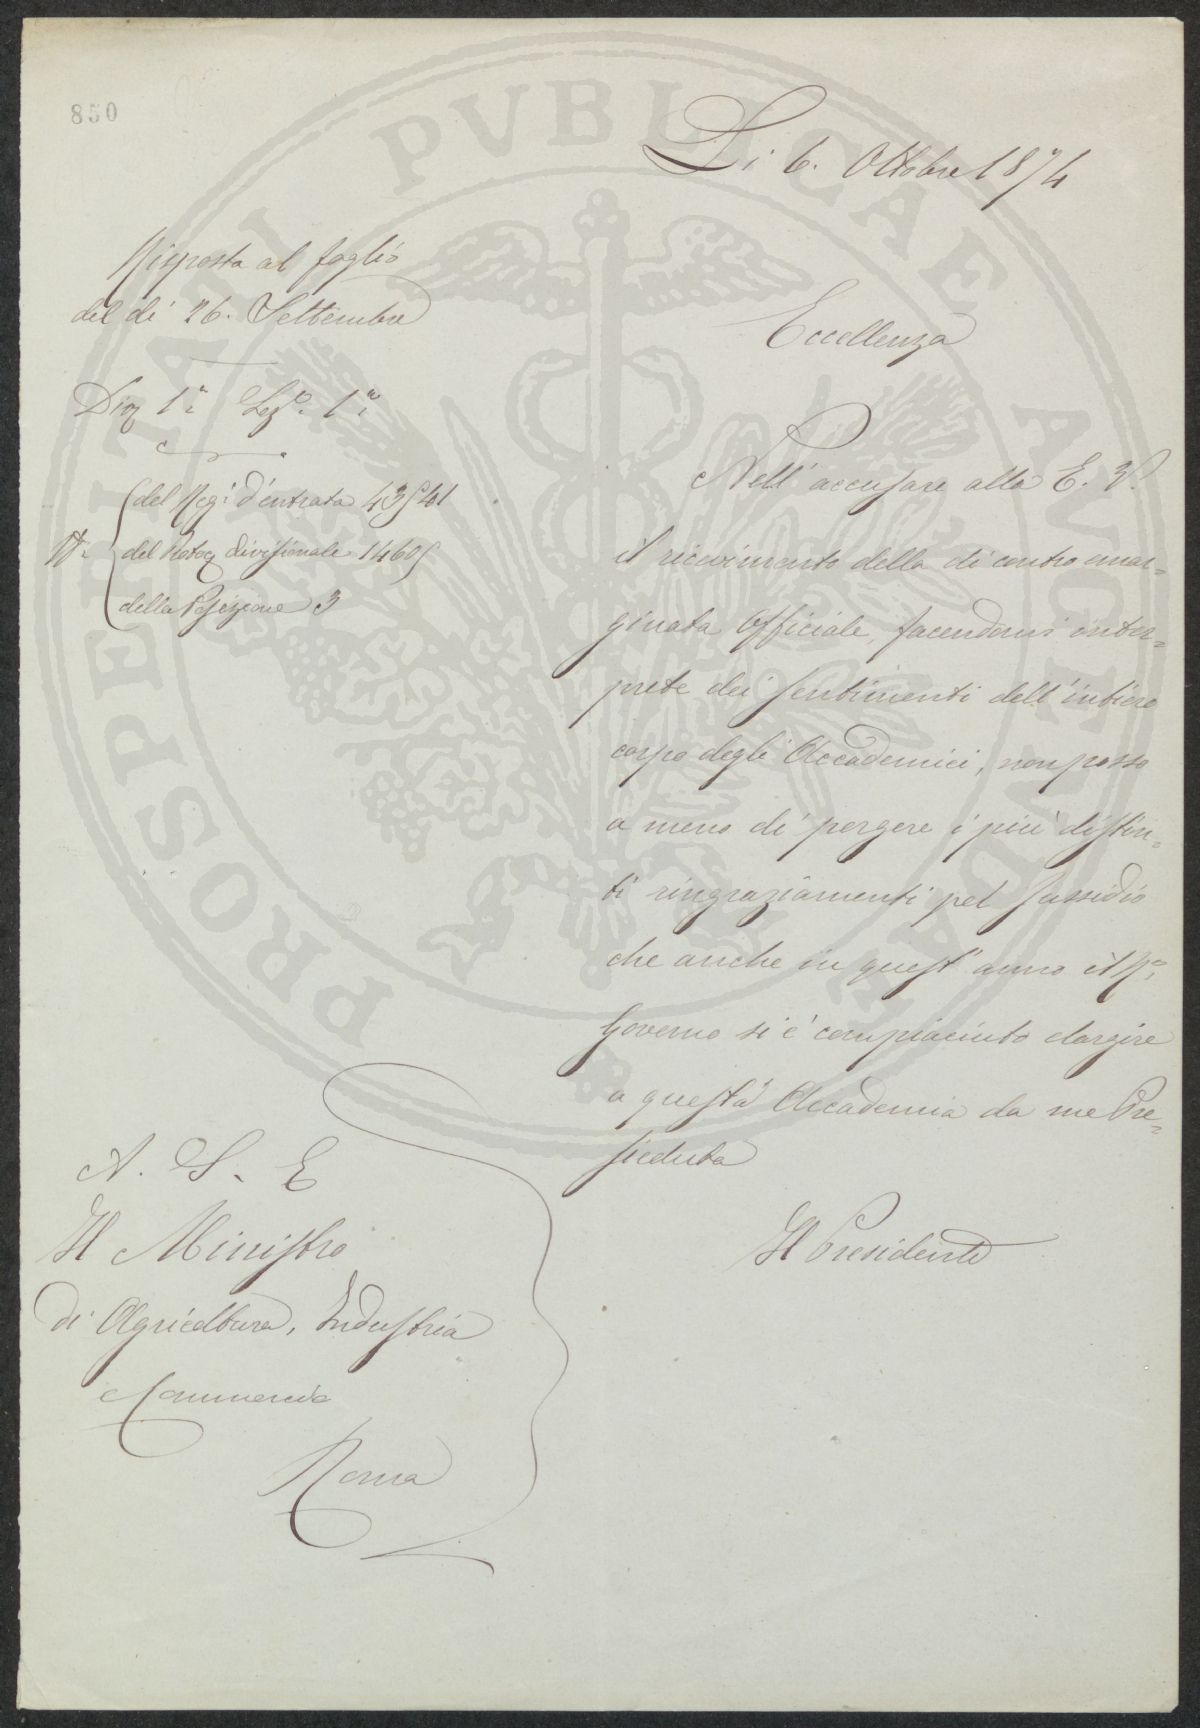 850
Li 6. Ottobre 1874
Risposta al foglio
del dì 26. Settembre
Div 1a Sez.e 1a
N.
del Reg. d'entrata 43541
del Protoc divisionale 14605
della Posizione 3
Eccellenza
Nell'accusare alla E. V.
il ricevimento della di contro mar=
ginata Officiale, facendomi inter=
prete dei sentimenti dell'intiero
corpo degli Accademici, non posso
a meno di porgere i più distin=
ti ringraziamenti pel sussidio
che anche in quest'anno il R.o
Governo si è compiaciuto elargire
a questa Accademia da me Pre=
sieduta
Il Presidente
A. S. E
Il Ministro
di Agricoltura, Industria
Commercio
Roma
PROSPERITATI PVBLICAE AVGENDAE